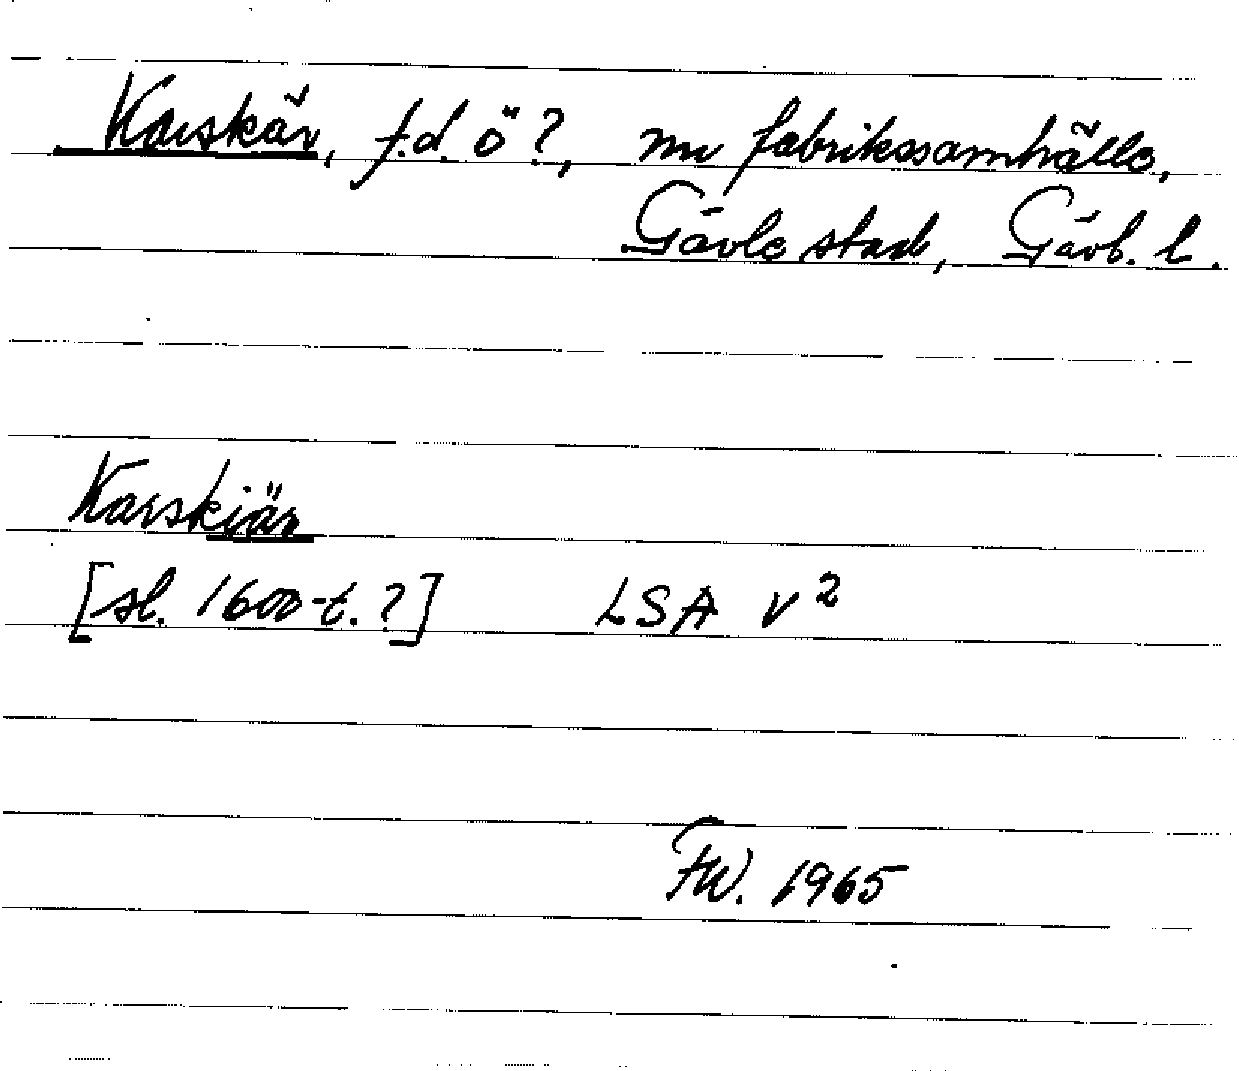 Karskär, f.d. ö?, nu fabrikssamhälle,
Gävle stad, Gävb. l.
Karskiär
[sl. 1600-t.?] LSA V2
FW. 1965